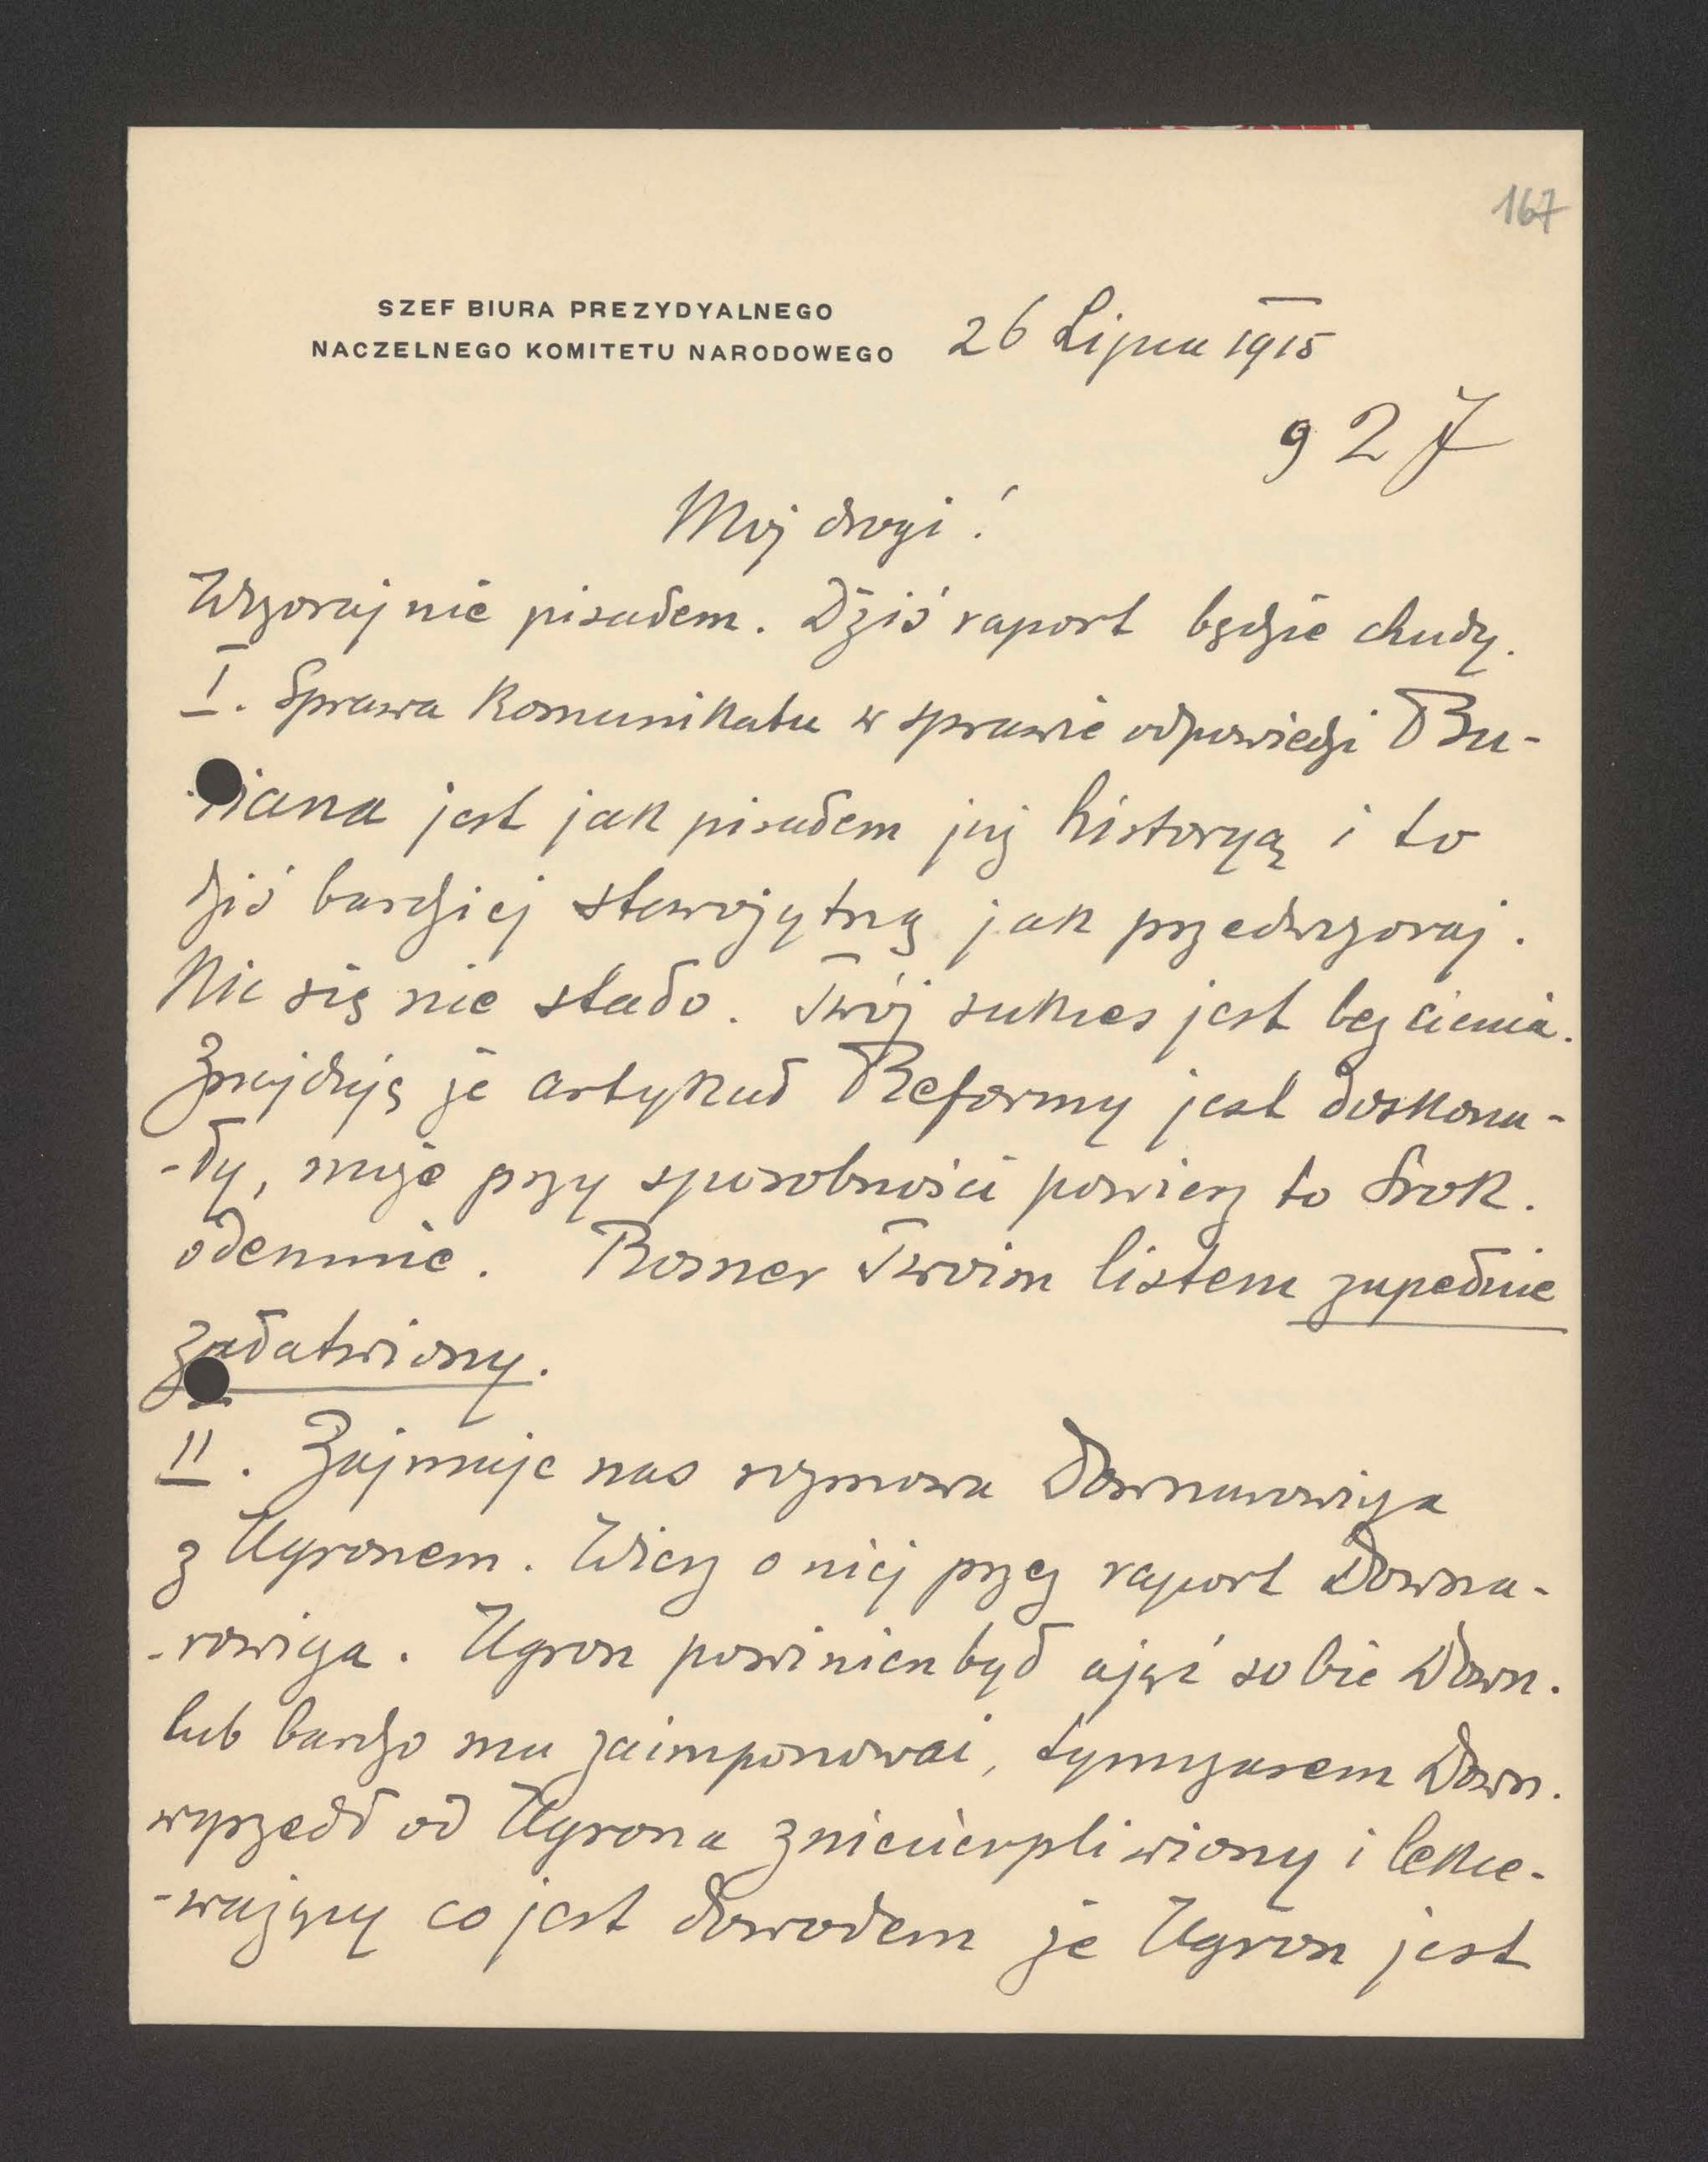 167
SZEF BIURA PREZYDYALNEGO
NACZELNEGO KOMITETU NARODOWEGO
26 Lipca 1915
927
Moj drogi!
Wczoraj nie pisałem. Dziś raport będzie chudy.
I. Sprawa Komunikatu w sprawie odpowiedzi Bu-
riana jest jak pisałem już historyą i to
dziś bardziej starożytną jak przedwczoraj.
Nic się nie stało. Twój sukces jest bez cienia.
Znajduję że artykuł Reformy jest doskona-
-ły, może przy sposobności powiesz to Srok.
odemnie. Rosner Twoim listem zupełnie
załatwiony.
II. Zajmuje nas rozmowa Downarowicza
z Ugronem. Wiesz o niej przez raport Downa-
-rowicza. Ugron powinien był ująć sobie Down.
lub bardzo mu zaimponować, tymczasem Down.
wyszedł od Ugrona zniecierpliwiony i lekce-
-ważący co jest dowodem że Ugron jest